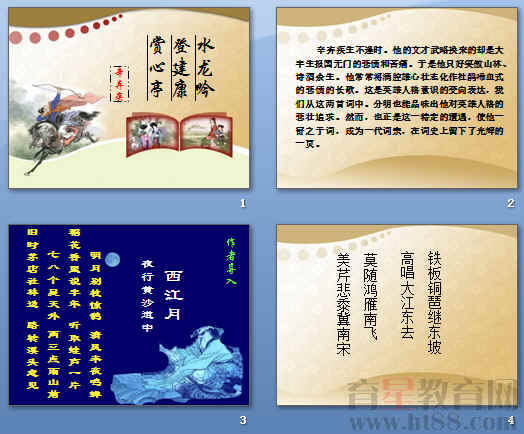 水龙吟
登建康
赏心亭
辛弃疾
1
辛弃疾生不逢时。他的文才武略换来的却是大
半生报国无门的悲愤和苦痛。于是他只好笑傲山林、
诗酒余生。他常常将满腔雄心壮志化作杜鹃啼血式
的悲愤的长歌。这是英雄人格意识的变向表达，我
们从这两首词中，分明也能品味出他对英雄人格的
悲壮追求。然而，也正是这一特定的遭遇，使他一
留之于词，成为一代词宗，在词史上留下了光辉的
一页。
2
作者导入
西江月
夜行黄沙道中
明月别枝惊鹊 清风半夜鸣蝉
稻花香里说丰年 听取蛙声一片
七八个星天外 两三点雨山前
旧时茅店社林边 路转溪头忽见
3
铁板铜琶继东坡
高唱大江东去
莫随鸿雁南飞
美芹悲黍冀南宋
4
育星教育网
www.ht88.com